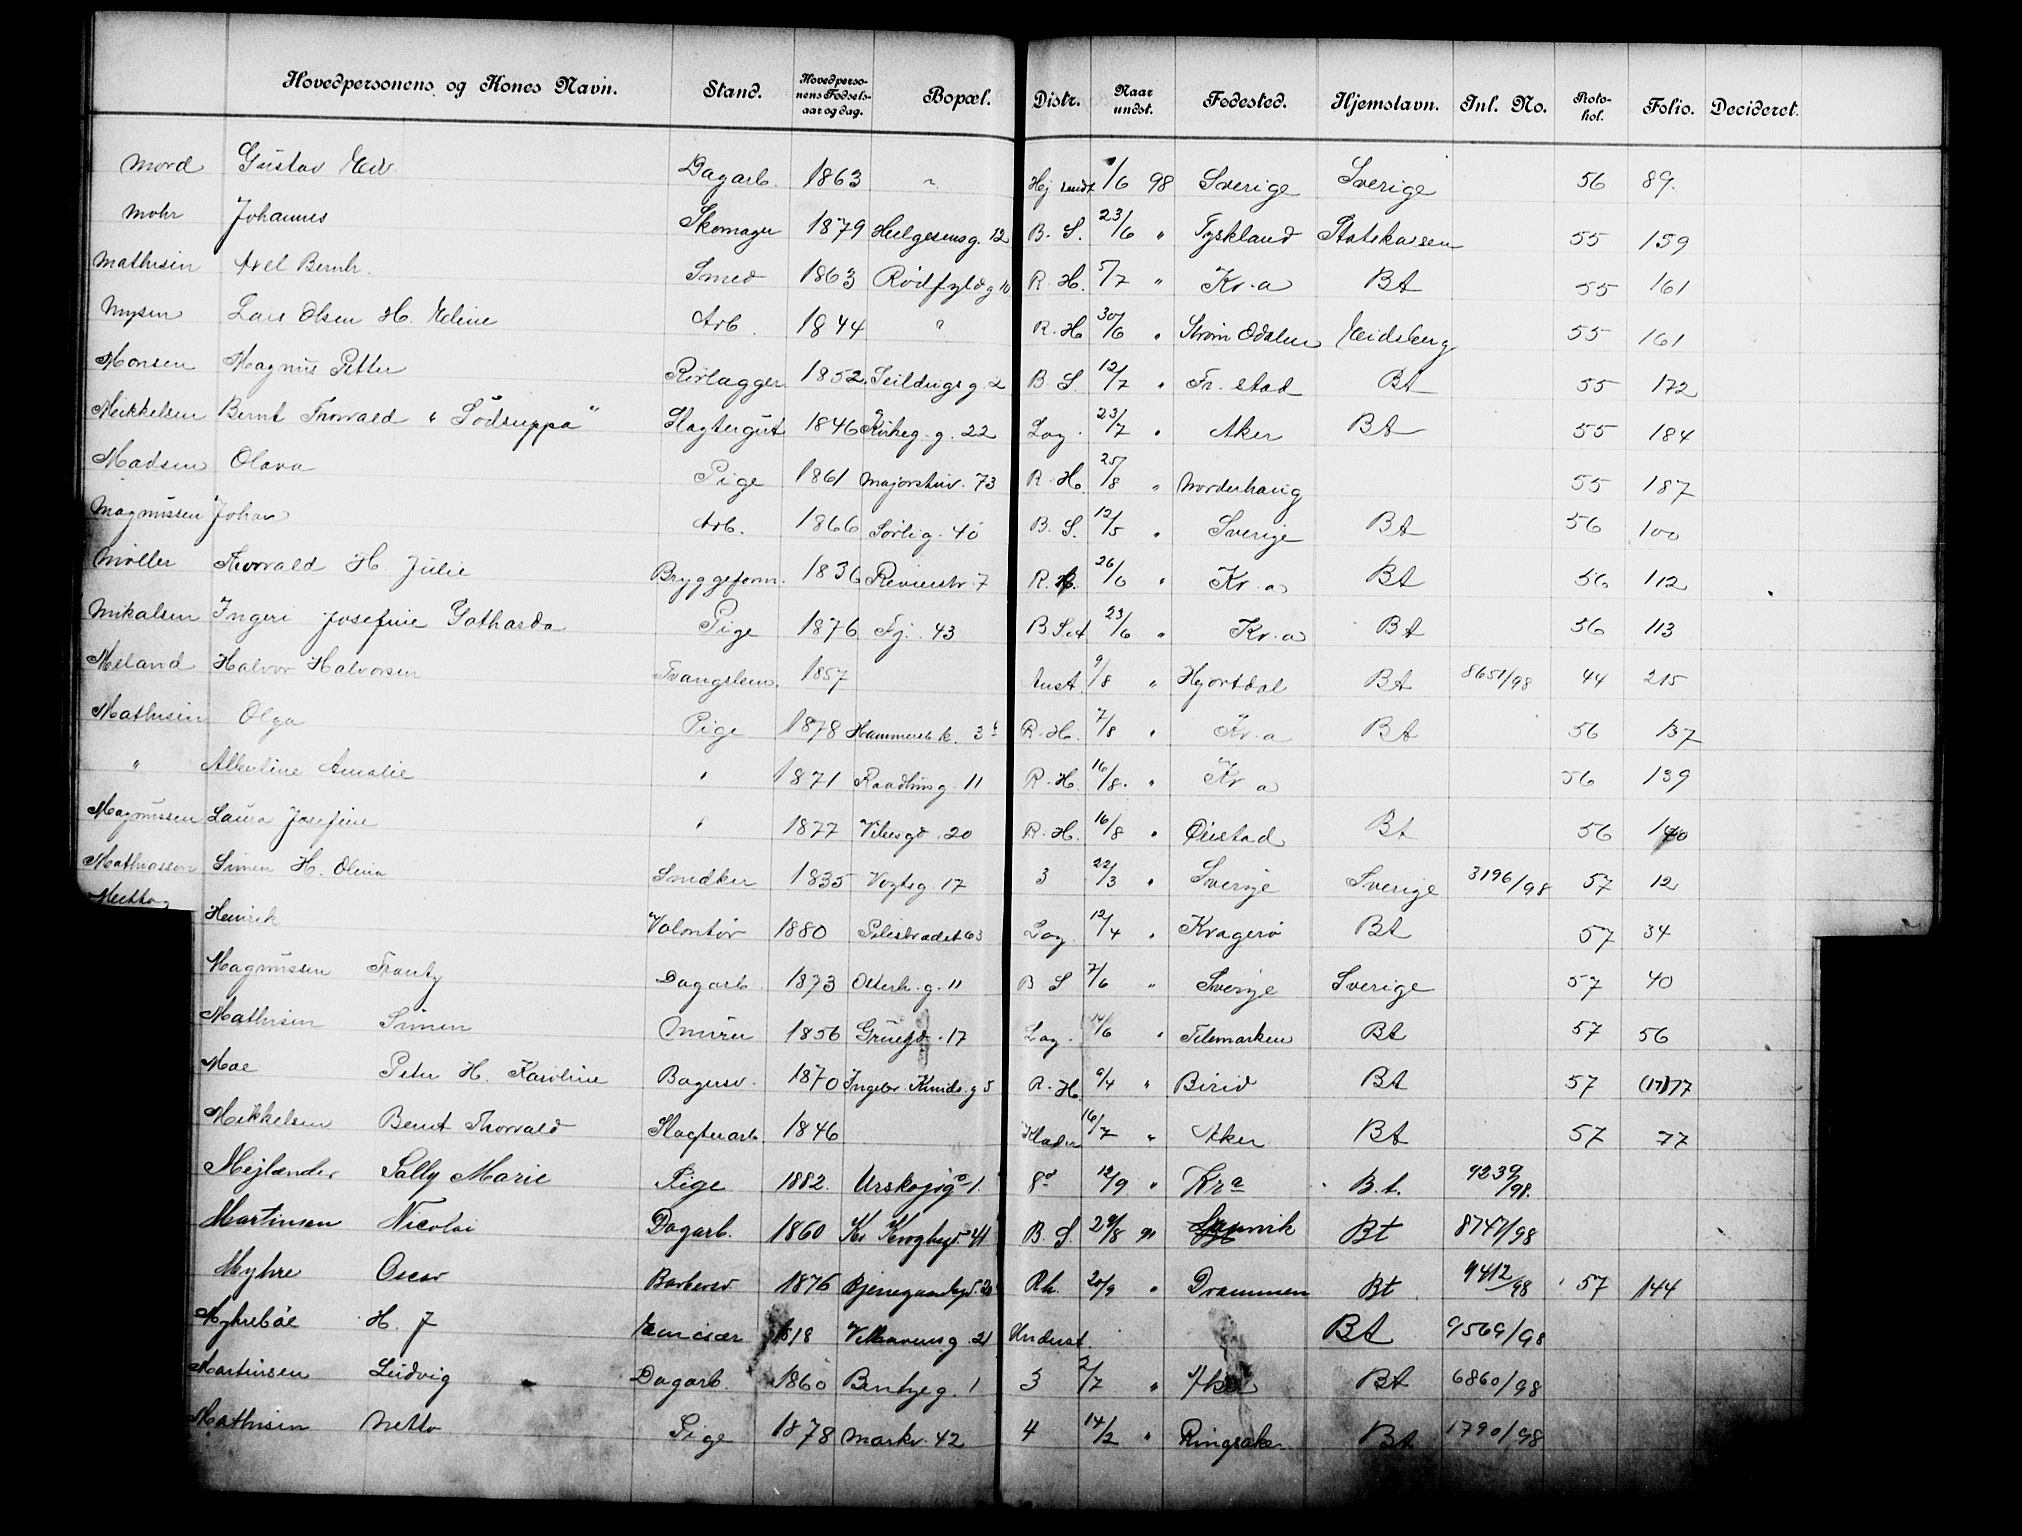 Hovedpersonens og Kones Navn. Stand. Hovedpersonens Fødselsaar og dag. Bopæl. Distr. Naar undst. Fødested. Hjemstavn. Inl. No. Protokol. Folio. Decideret.
Mord Gustav Edv. Dagarb. 1863 " Hj 1/6 98 Sverige Sverige 56 89.
Mohr Johannes Skomager 1879 Helgesensg. 12 B. S. 23/6 " Tyskland Statskassen 55 159
Mathisen Axel Bernh. Smed 1863 Rødfyldg 10 R. H. 5/7 " Kr.a Bt 55 161
Mysen Lars Olsen H. Eline Arb. 1844 " R. H 30/6 " Strøm Odalen Eidsberg 55 161
Monsen Magnus Petter Rørlægger 1852 Seildugsg. 2 B S. 12/7 " Fr. stad Bt 55 172
Mikkelsen Bernt Thorvald " Södsuppa " Slagtergut 1846 Kirkeg. g. 22 Lag. 23/7 " Aker Bt 55 184
Madsen Olava Pige 1861 Majorstuv. 73 R. H. 25/8 " Norderhaug 55 187
Magnussen Johan Arb. 1866 Sørlig. 40 B. S. 12/5 " Sverige Bt 56 100
Møller Thorvald H Julie Bryggeform. 1836 Revierstr. 7 R. H. 26/6 " Kr.a Bt 56 112
Mikalsen Ingeri Josefine Gotharda Pige 1876 Fj. 43 B. S. 23/6 " Kr.a Bt 56 113
Meland Halvor Halvorsen Tvangslem. 1857 9/8 " Hjartdal Bt 8651/98 44 215
Mathisen Olga Pige 1878 Hammersb. k. 3 R. H. 7/8 " Kr.a Bt 56 137
" Albertine Amalie " 1871 Raadhusg. 11 R. H. 16/8. " Kr a 56 139
Magnussen Laura Josefine " 1877 Vibesgd. 20 R. H. 16/8 " Øiestad Bt 56 140
Mathiassen Simen H. Olina Snedker 1835 Vogtsg. 17 3 22/3 " Sverige Sverige 3196/98 57 12
Henrik Volontør 1880 Pilestrædet 63 Lag. 12/4 " Kragerø Bt 57 34
Magnussen Frantz Dagarb. 1873 Osterh. g. 11 B S 7/6 " Sverige Sverige 57 40
Mathisen Simen Murer 1856 Grüngd. 17 Lag. 14/6 " Telemarken Bt 57 56
Moe Peter H. Karoline Bagersv. 1870 Ingebr. Knuds. g 5 R. H. 6/4 " Birid Bt 57 (17)77
Mikkelsen Bernt Thorvald Slagterarb. 1846 16/7 " Aker Bt 57 77
Mejlænder Sally Marie Pige 1882. Urskogg 1. 8d 12/9 " Kra Bt. 9239/98.
Martinsen Nicolai Dagarb. 1860 Kr Kroghsgd. 41 B. S. 29/8 " Bt 8747/98
Myhre Oscar Barbersv 1876 Rh. 20/9 " Drammen Bt 9412/98 57 144
Myhreböe H. J 1818 21 Underst. Bt 9569/98
Martinsen Ludvig Dagarb. 1860 Bentseg. 1 3 2/7 " Aker Bt 6860/98
Mathisen Netta Pige 1878 Markv. 42 4 14/2 " Ringsaker Bt 1790/98